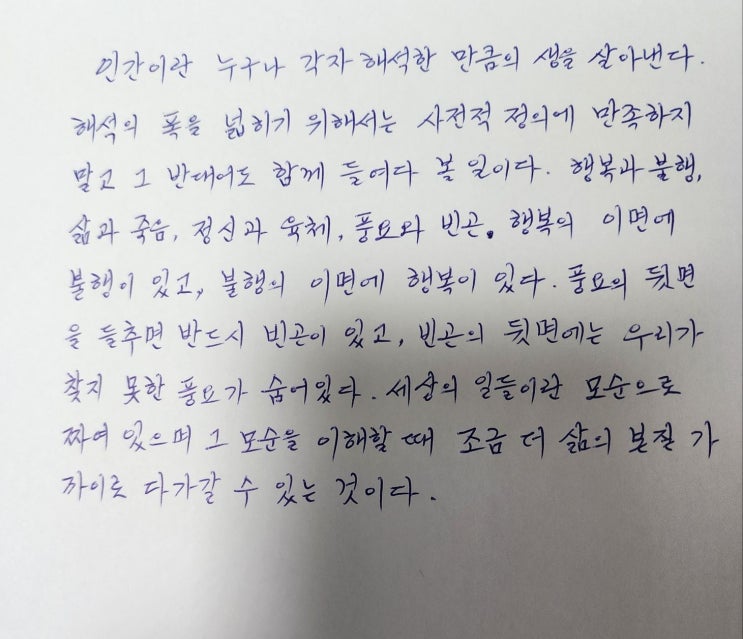 인간이란 누구나 각자 해석한 만큼의 생을 살아낸다.
해석의 폭을 넓히기 위해서는 사전적 정의에 만족하지
말고 그 반대어도 함께 들여다 볼 일이다. 행복과 불행,
삶과 죽음, 정신과 육체, 풍요와 빈곤. 행복의 이면에
불행이 있고, 불행의 이면에 행복이 있다. 풍요의 뒷면
을 들추면 반드시 빈곤이 있고, 빈곤의 뒷면에는 우리가
찾지 못한 풍요가 숨어있다. 세상의 일들이란 모순으로
짜여 있으며 그 모순을 이해할 때 조금 더 삶의 본질 가
까이로 다가갈 수 있는 것이다.